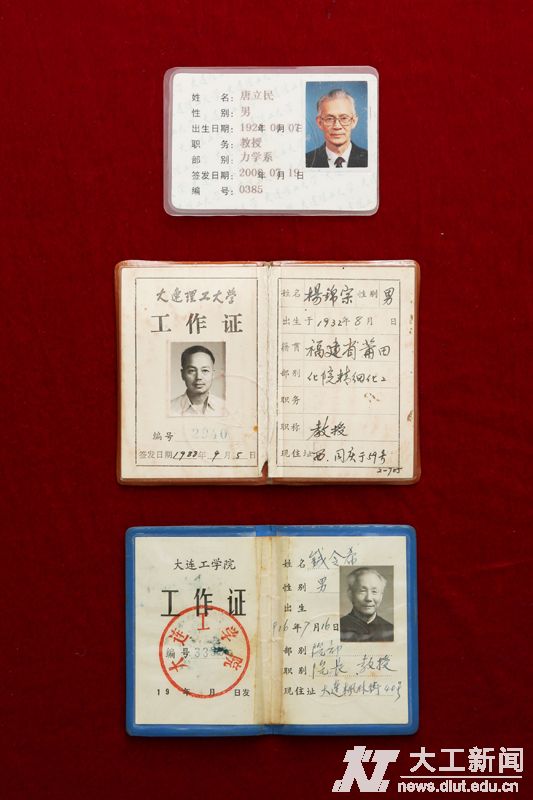 姓　名：唐立民
性　别：男
出生日期：192　年　月07日
职　务：教授
部　别：力学系
签发日期：2006 07 19 年　月　日
编　号：0385
大连理工大学
工作证
编号 2940
签发日期1988年9月5日
姓名 楊锦宗 性别 男
出生于1932年8月　日
籍贯 福建省莆田
部别 化院精细化工
职务
职称 教授
现住址
大连工学院
工作证
大连工学院
编号
19　年　月　日发
姓名 钱令希
性别 男
出生
1916年7月16日
部别 院部
职别 院长 教授
现住址 大连
大工新闻
news.dlut.edu.cn